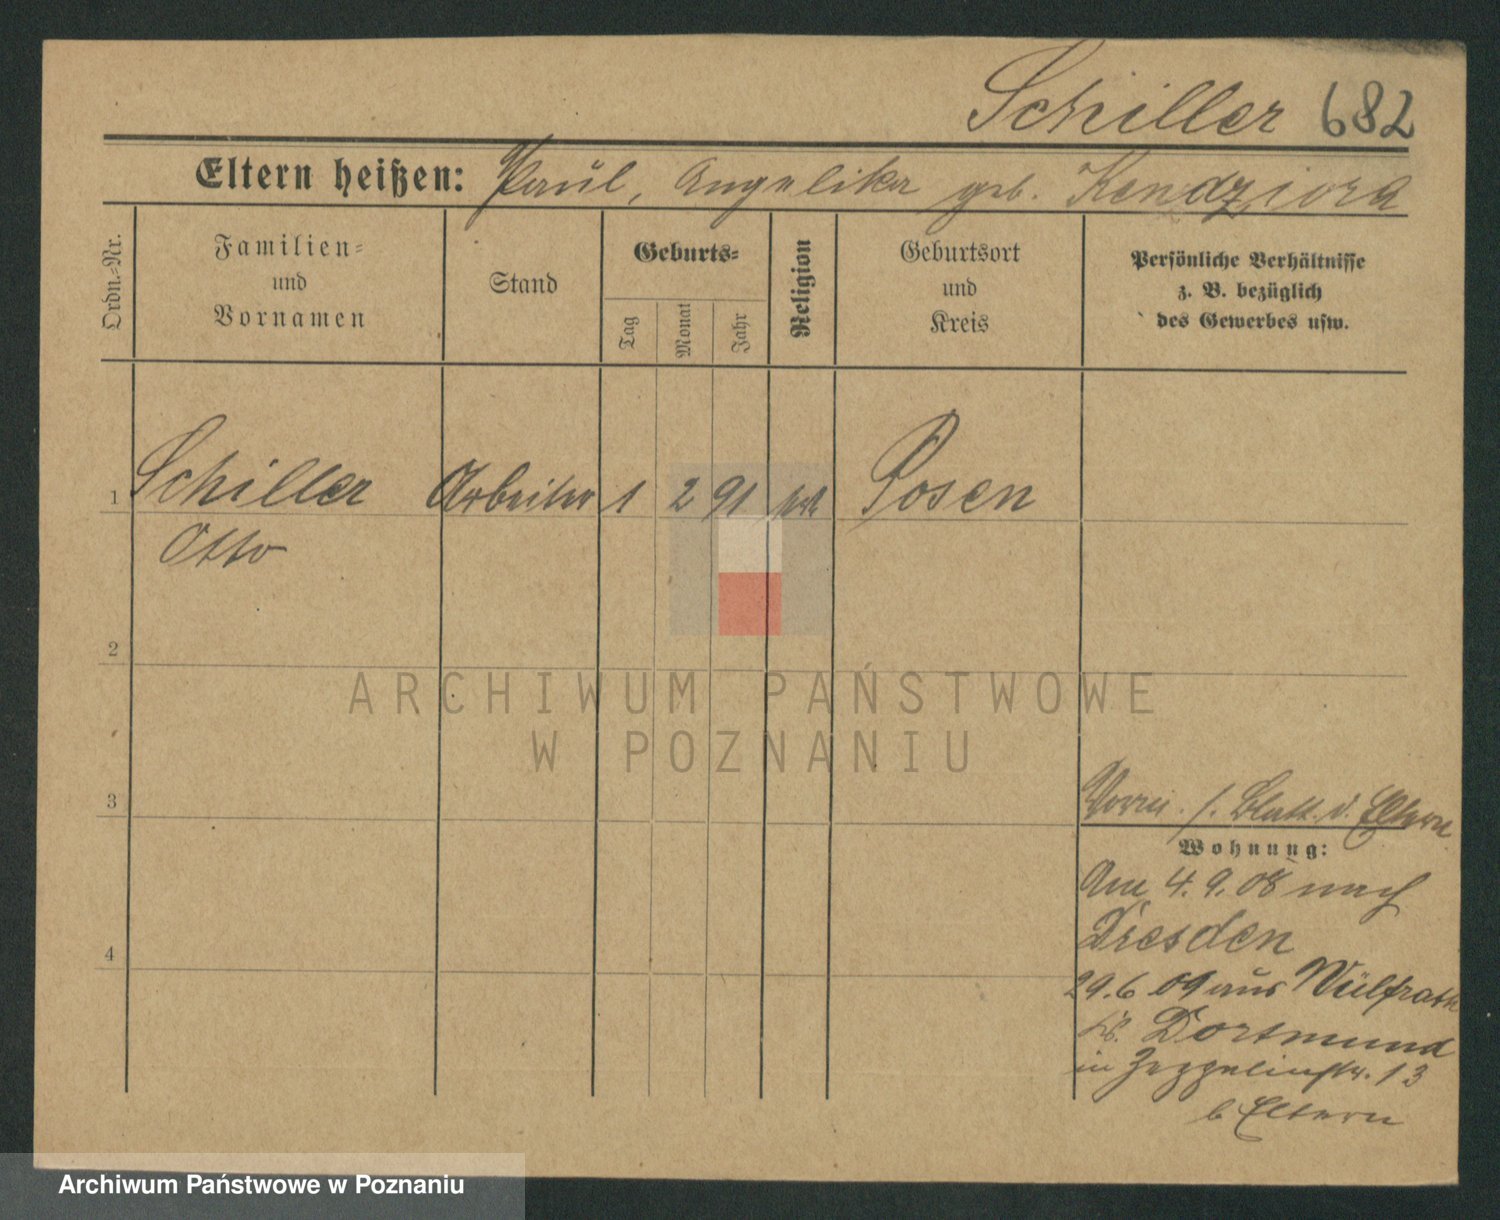 Schiller 682
Eltern heißen: Paul, Angelika geb. Kendziora
Ordn.-Nr.
Familien-
und
Vornamen
Stand
Geburts-
Tag
Monat
Jahr
Religion
Geburtsort
und
Kreis
Persönliche Verhältnisse
z. B. bezüglich
des Gewerbes usw.
1 Schiller Arbeiter 1 2 91 kath Posen
Otto
2
3
4
s. Blatt d. Eltern
Wohnung:
Am 4.9.08 nach
Dresden
29.6.09 aus Wülfrath
Kr. Dortmund
in Zeppelinstr. 13
b Eltern
ARCHIWUM PAŃSTWOWE
W POZNANIU
Archiwum Państwowe w Poznaniu